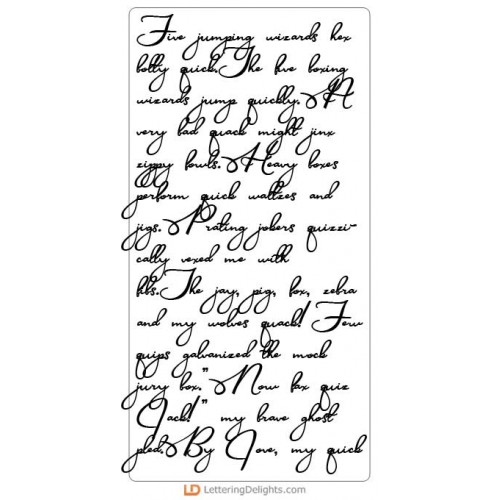 Five jumping wizards hex
bolty quick. The five boxing
wizards jump quickly. A
very bad quack might jinx
zippy fowls. Heavy boxes
perform quick waltzes and
jigs. Prating jobers quizzi-
cally vexed me with
fibs. The jay, pig, fox, zebra
and my wolves quack! Few
quips galvanized the mock
jury box." Now fax quiz
Jack!" my brave ghost
pled. By Jove, my quick
LD LetteringDelights.com